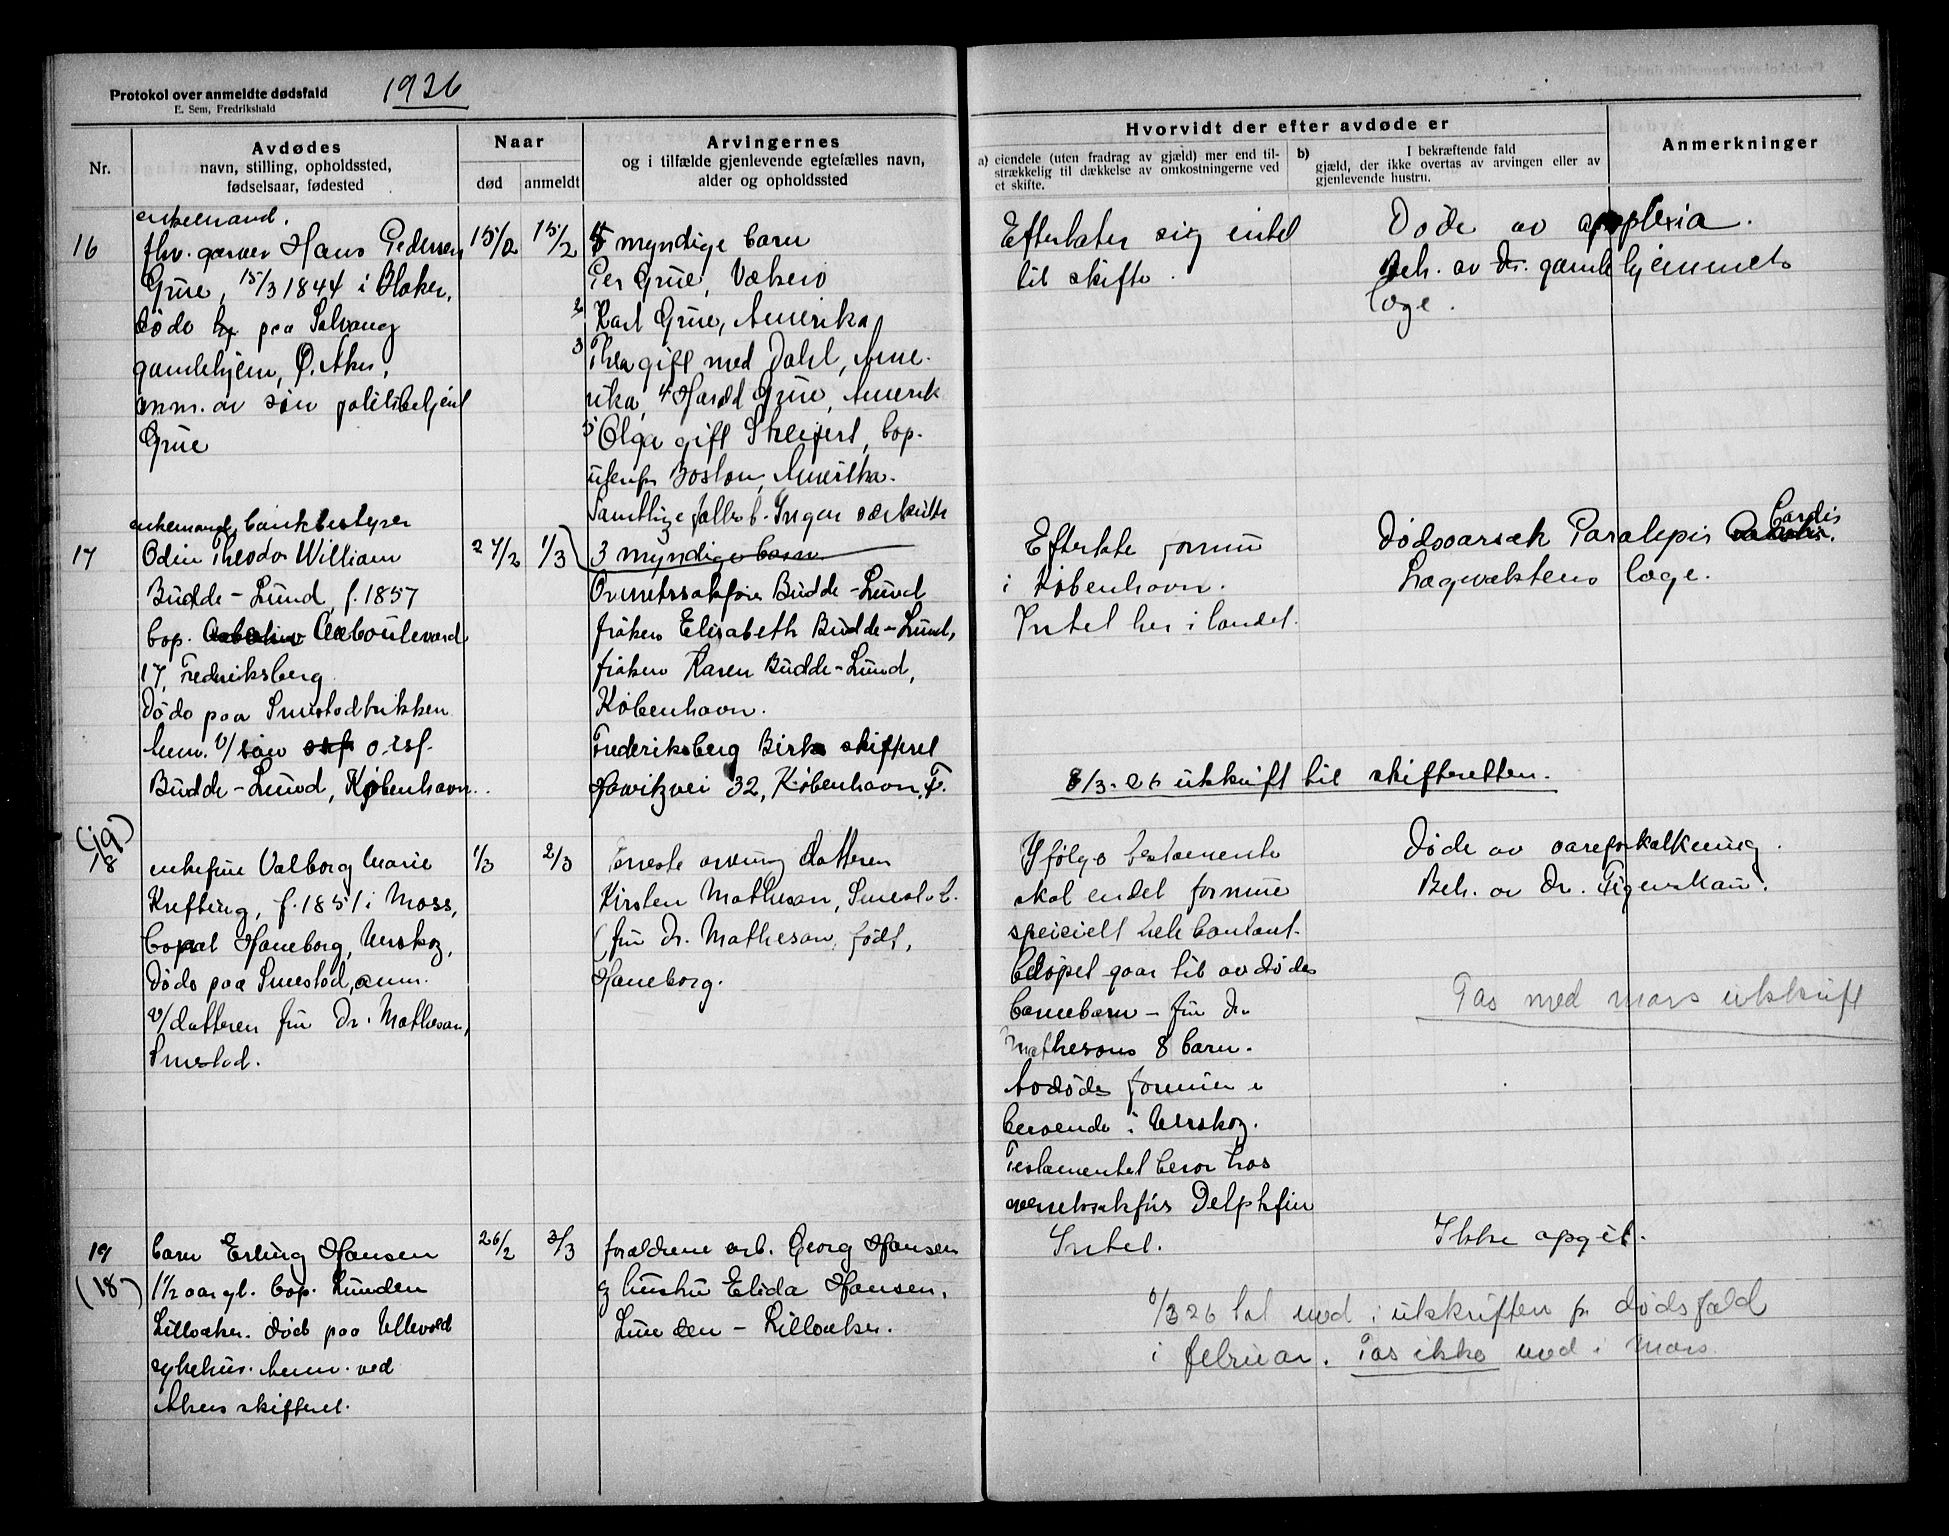 Protokol over anmeldte dødsfald
E. Sem, Fredrikshald
1926
Nr.
Avdødes
navn, stilling, opholdssted,
fødselsaar, fødested
Naar
død
anmeldt
Arvingernes
og i tilfælde gjenlevende egtefælles navn,
alder og opholdssted
Hvorvidt der efter avdøde er
a) eiendele (uten fradrag av gjæld) mer end til-
strækkelig til dækkelse av omkostningerne ved
et skifte.
b) I bekræftende fald
gjæld, der ikke overtas av arvingen eller av
gjenlevende hustru.
Anmerkninger
16
enkemand.
fhv. garver Hans Pedersen
Grue, 15/3 1844 i Blaker,
døde paa Solvang
gamlehjem, Ø. Aker,
anm. av søn politibetjent
Grue
15/2
15/2
5 myndige barn
Per Grue, Vækerø
2 Karl Grue, Amerika
3 Thea gift med Dahl, Ame-
rika, 4 Harald Grue, Amerik
5 Olga gift Skeifert, bop.
Boston, Amerika.
Samtlige fælles b. Ingen særkulls
Efterlater sig intet
til skifte.
Døde av apoplexia.
Beh. av Dr. gamlehjemmets
læge.
17
enkemand, bankbestyrer
Odin Theodor William
Budde-Lund, f. 1857
bop. Aaboulevard
17, Fredriksberg
Døde paa Smestadbrikken
hem. v/ søn orsf.
Budde-Lund, København.
27/2
1/3
3 myndige barn
Overretssakfører Budde-Lund
frøken Elisabeth Budde-Lund,
frøken Karen Budde-Lund,
København.
Frederiksberg Birks skifteret
Howitzvei 32, København, F.
Efterlate formue
i København.
Intet her i landet.
Dødsaarsak Paralepis Cordis
Lægevaktens læge.
8/3-26 utskrift til skifteretten.
(19)
18
enkefrue Valborg Marie
Krefting, f. 1851 i Moss,
bopæl Haneborg, Urskog,
Døde paa Smestad, anm.
v/ datteren fru Dr. Matheson,
Smestad.
1/3
2/3
Eneste arving datteren
Kirsten Matheson, Smestad.
(fru Dr. Matheson, født,
Haneborg.
Ifølge testamente
skal endel formue
specielt hele kontant-
beløpet gaar til avdødes
barnebarn - fru Dr.
Mathesons 8 barn.
Avdødes formue er
beroende i Urskog.
Testamentet beror hos
overretssakfør Delphin
Døde av aareforkalkning.
Beh. av Dr. Figenskau.
Tas med mars utskrift
19
(18)
barn Erling Hansen
1½ aar gl. bop. Lunden
Lilleaker. død paa Ullevold
sykehus. hem. ved
Akers skifteret.
26/2
3/3
forældrene arb. Georg Hansen
og hustru Elida Hansen,
Lunden - Lilleaker.
Intet.
Ikke opgit.
/3 26 tat med i utskriften p. dødsfald
i februar. Tas ikke med i mars